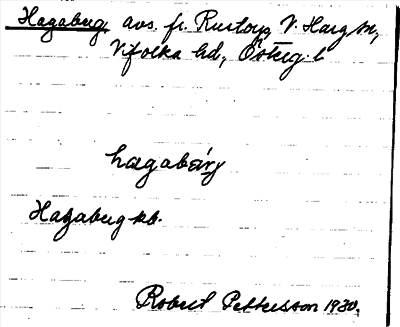 Hagaberg avs. fr. Rustorp V. Harg sn,
Vifolka hd, Östergl
hagabärj
Hagaberg kb.
Robert Pettersson 1930.